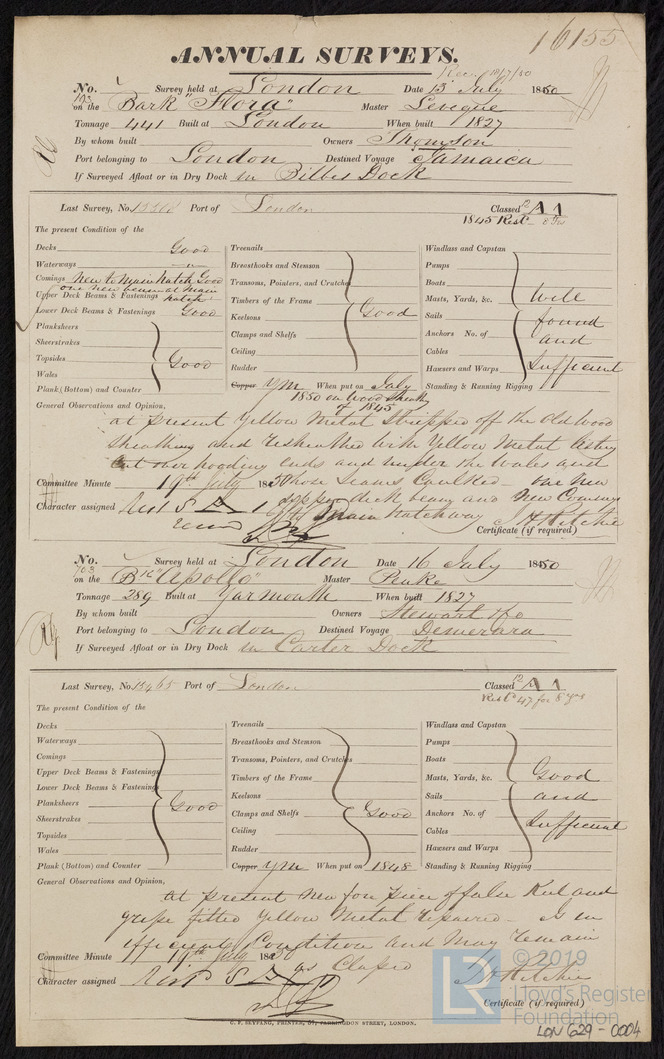 16155
ANNUAL SURVEYS.
Rec. 18/7/50
No. Survey held at London Date 13 July 1850
703
on the Bark "Flora" Master Leveque
Tonnage 441 Built at London When built 1827
By whom built Owners Thomson
Port belonging to London Destined Voyage Jamaica
If Surveyed Afloat or in Dry Dock in Bilbes Dock
Last Survey, No. Port of London Classed 12 A 1
1845 Rest. 8 Yrs
The present Condition of the
Decks Good
Waterways
Comings New to Main Hatch Good
one new beam at Main hatch
Upper Deck Beams & Fastenings
Lower Deck Beams & Fastenings Good
Planksheers
Sheerstrakes
Topsides Good
Wales
Plank (Bottom) and Counter
Treenails
Breasthooks and Stemson
Transoms, Pointers, and Crutches
Timbers of the Frame
Keelsons Good
Clamps and Shelfs
Ceiling
Rudder
Copper YM When put on July
1850 on Wood Sheathg
of 1845
Windlass and Capstan
Pumps
Boats
Masts, Yards, &c. Well
Sails found
Anchors No. of and
Cables
Hawsers and Warps Sufficient
Standing & Running Rigging
General Observations and Opinion,
at present Yellow Metal Stripped off the old wood
Sheathing and resheathed with Yellow Metal
Cut over hooding ends and under the Wales and
Committee Minute 19th July 1850 those Seams Caulked - one New
Character assigned A 1 upper deck beam and New Comings
to Main hatchway J H Ritchie
Certificate (if required)
No. Survey held at London Date 16 July 1850
703
on the Bk "Apollo" Master Pruke
Tonnage 389 Built at Yarmouth When built 1827
By whom built Owners Stewart & Co
Port belonging to London Destined Voyage Demerara
If Surveyed Afloat or in Dry Dock in Carter Dock
Last Survey, No. 15465 Port of London Classed 12 A 1
Restd 47 for 8 yrs
The present Condition of the
Decks
Waterways
Comings
Upper Deck Beams & Fastenings
Lower Deck Beams & Fastenings
Planksheers Good
Sheerstrakes
Topsides
Wales
Plank (Bottom) and Counter
Treenails
Breasthooks and Stemson
Transoms, Pointers, and Crutches
Timbers of the Frame
Keelsons
Clamps and Shelfs Good
Ceiling
Rudder
Copper YM When put on 1848
Windlass and Capstan
Pumps
Boats
Masts, Yards, &c. Good
Sails and
Anchors No. of
Cables Sufficient
Hawsers and Warps
Standing & Running Rigging
General Observations and Opinion,
at present New fore piece of false Keel and
gripe fitted Yellow Metal repaired - Is in
efficient Condition and May remain
Committee Minute 19th July 1850
Character assigned as Classed J H Ritchie
Certificate (if required)
C. F. SEYFANG, PRINTER, 57, FARRINGDON STREET, LONDON.
LR © 2019
Lloyd's Register
Foundation
LON 629-0004